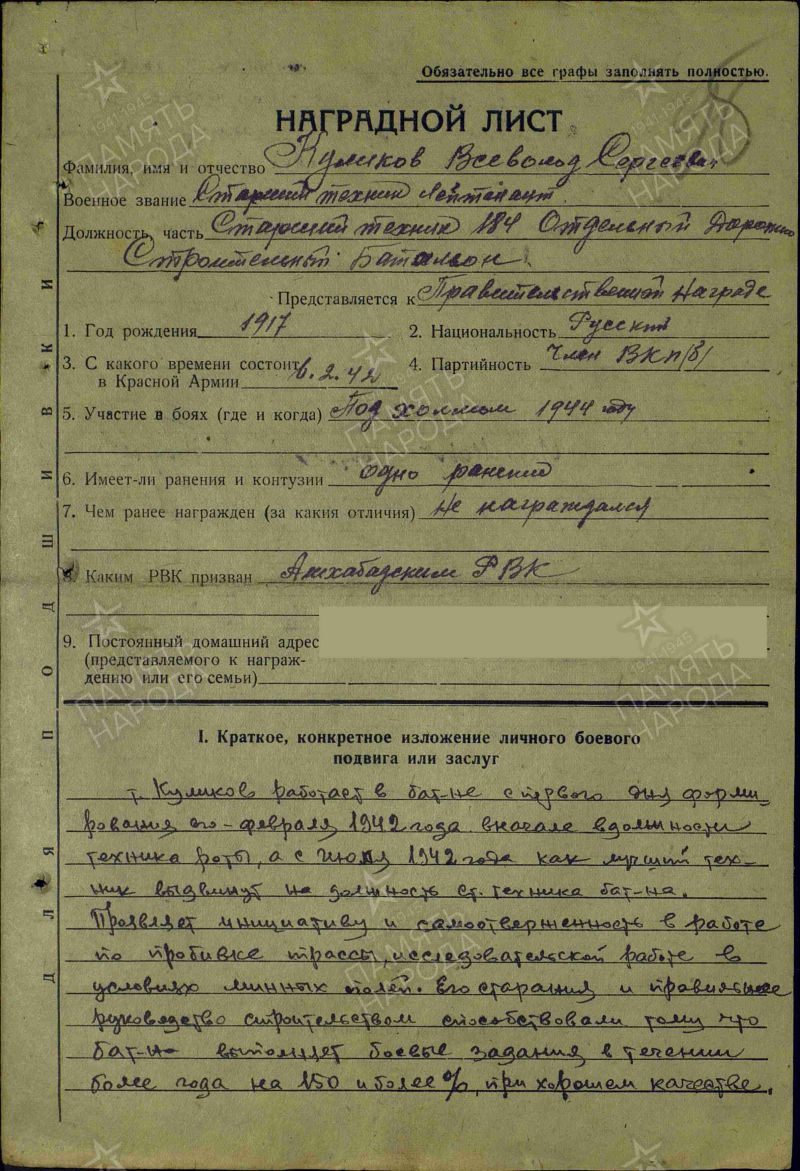 Обязательно все графы заполнять полностью.
НАГРАДНОЙ ЛИСТ
Фамилия, имя и отчество Куликов Всеволод Сергеевич
Военное звание Старший техник лейтенант
Должность, часть Старший техник 184 Отдельный Дорожно
Строительный Баталион
Представляется к Правительственной Награде
1. Год рождения 1917
2. Национальность Русский
3. С какого времени состоит
в Красной Армии 6.2.42
4. Партийность Член ВКП/б/
5. Участие в боях (где и когда) Под холмом 1944 году
6. Имеет-ли ранения и контузии одно ранение
7. Чем ранее награжден (за какия отличия) Не награждался
8. Каким РВК призван Ашхабадским РВК
9. Постоянный домашний адрес
(представляемого к награж-
дению или его семьи)
I. Краткое, конкретное изложение личного боевого
подвига или заслуг
т. Куликов работает в бат-не с первого дня форми-
рования его - февраля 1942 года вначале в должности
техника роты, а с июля 1942 года как лучший тех-
ник выдвинут на должность ст. техника бат-на.
Проявляет инициативу и самоотверженность в работе
по пробивке трассы, исследовательской работе в
условиях минных полей. Его старания и правильное
руководство строительством способствовали тому что
бат-н выполняет боевые задания в течении
более года на 150 и более %, при хорошем качестве.
ДЛЯ ПОДШИВКИ
ПАМЯТЬ
НАРОДА
1941-1945